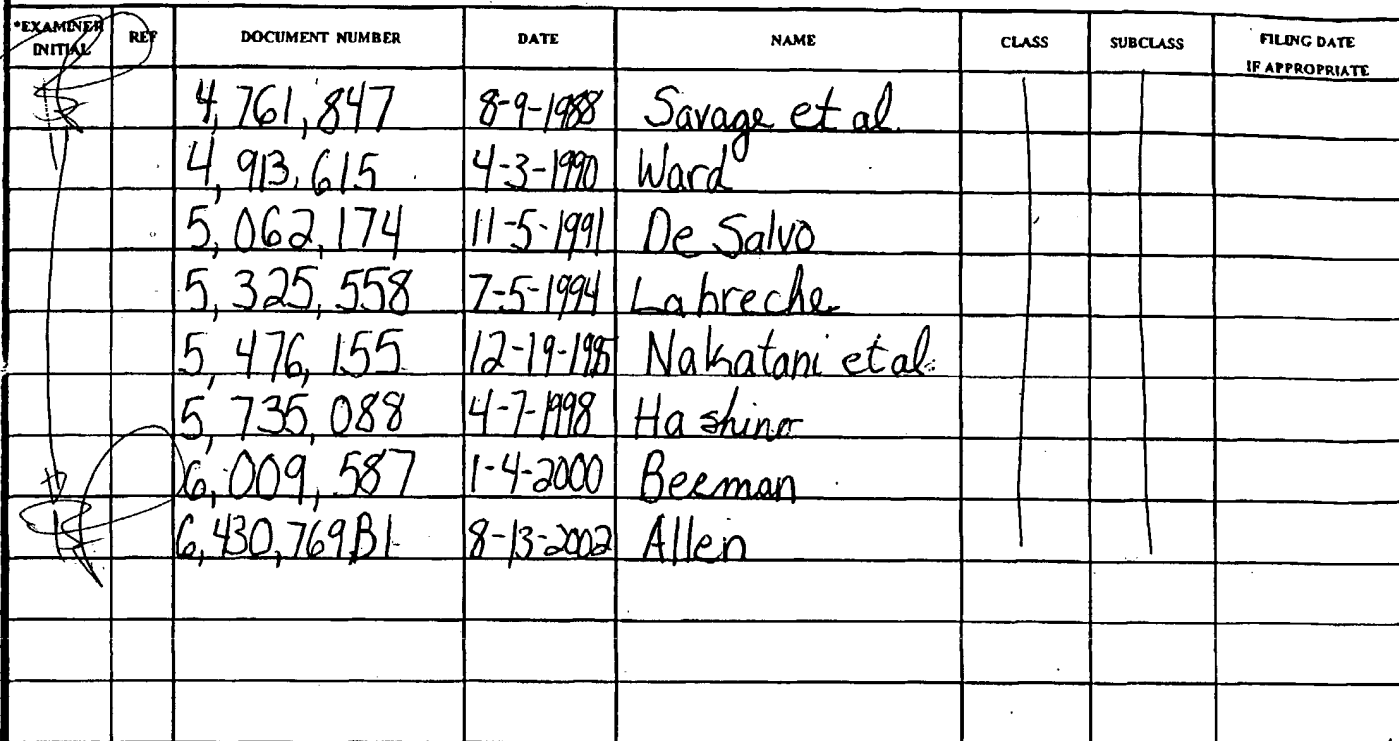 *EXAMINER INITIAL REF DOCUMENT NUMBER DATE NAME CLASS SUBCLASS FILING DATE IF APPROPRIATE
4,761,847 8-9-1988 Savage et al.
4,913,615 4-3-1990 Ward
5,062,174 11-5-1991 De Salvo
5,325,558 7-5-1994 Labreche
5,476,155 12-19-1995 Nakatani et al.
5,735,088 4-7-1998 Hashino
6,009,587 1-4-2000 Beeman
6,430,769B1 8-13-2002 Allen